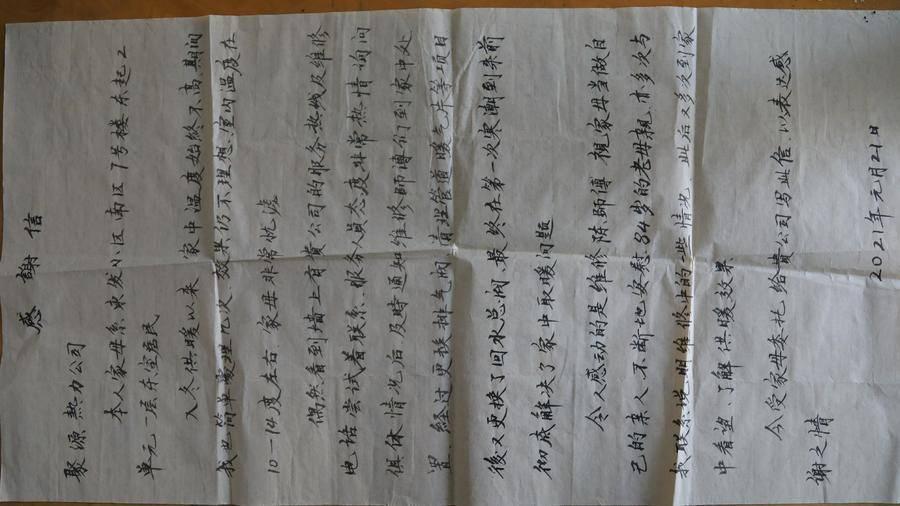 感謝信
聚源热力公司
本人家母系来发小区南区7号楼东起2
单元一层东室居民
入冬供暖以来 家中温度始终不高,期间
我也简单處理几次,效果仍不理想,室内温度在
10—14度左右,家母非常忧濾
偶然看到墙上有贵公司的服务热线及维修
电话尝试着联系,服务人员态度非常热情,询问
俱体情况后及時通知维修師傅们到家中处
置,经过更换排气阀,清理管道暖气片等项目
後又更换了回水总阀,最终在第一次寒潮到来前
彻底解决了家中取暖问题
令人感动的是维修陈師傅 视家母当做自
己的亲人,不断地安慰84岁的老母親,亦多次与
我联系说明维修中的一些情况,此后又多次到家
中看望、了解供暖效果
今受家母委托给贵公司写此信,以表达感
谢之情
2021年元月21日